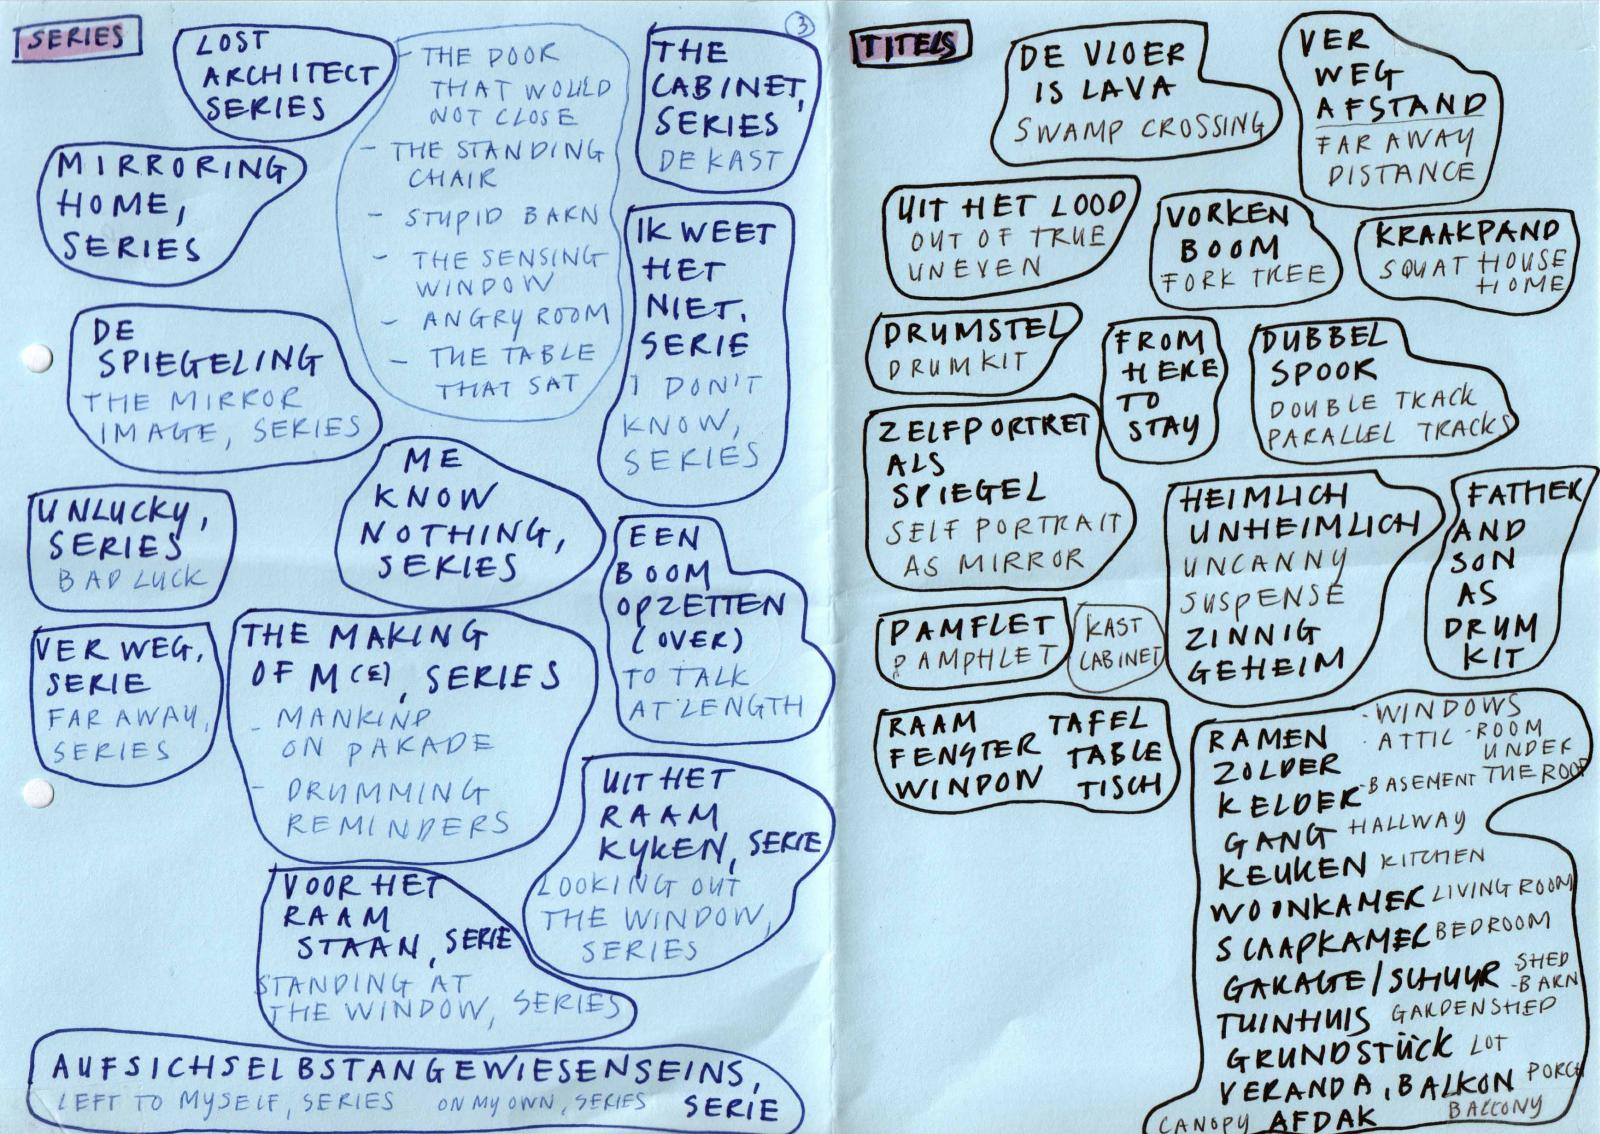 SERIES
LOST
ARCHITECT
SERIES
- THE DOOR
THAT WOULD
NOT CLOSE
- THE STANDING
CHAIR
- STUPID BARN
- THE SENSING
WINDOW
- ANGRY ROOM
- THE TABLE
THAT SAT
3
THE
CABINET,
SERIES
DE KAST
MIRRORING
HOME,
SERIES
IK WEET
HET
NIET,
SERIE
I DON'T
KNOW,
SERIES
DE
SPIEGELING
THE MIRROR
IMAGE, SERIES
ME
KNOW
NOTHING,
SERIES
UNLUCKY,
SERIES
BAD LUCK
EEN
BOOM
OPZETTEN
(OVER)
TO TALK
AT LENGTH
VER WEG,
SERIE
FAR AWAY,
SERIES
THE MAKING
OF M(E), SERIES
- MANKIND
ON PARADE
- DRUMMING
REMINDERS
UIT HET
RAAM
KYKEN, SERIE
LOOKING OUT
THE WINDOW,
SERIES
VOOR HET
RAAM
STAAN, SERIE
STANDING AT
THE WINDOW, SERIES
AUFSICHSELBSTANGEWIESENSEINS,
SERIE
LEFT TO MYSELF, SERIES ON MY OWN, SERIES
TITELS
DE VLOER
IS LAVA
SWAMP CROSSING
VER
WEG
AFSTAND
FAR AWAY
DISTANCE
UIT HET LOOD
OUT OF TRUE
UNEVEN
VORKEN
BOOM
FORK TREE
KRAAKPAND
SQUAT HOUSE
HOME
DRUMSTEL
DRUMKIT
FROM
HERE
TO
STAY
DUBBEL
SPOOR
DOUBLE TRACK
PARALLEL TRACKS
ZELFPORTRET
ALS
SPIEGEL
SELF PORTRAIT
AS MIRROR
HEIMLICH
UNHEIMLICH
UNCANNY
SUSPENSE
ZINNIG
GEHEIM
FATHER
AND
SON
AS
DRUM
KIT
PAMFLET
PAMPHLET
KAST
CABINET
RAAM TAFEL
FENSTER TABLE
WINDOW TISCH
RAMEN - WINDOWS
ZOLDER - ATTIC - ROOM
UNDER
THE ROOF
KELDER - BASEMENT
GANG HALLWAY
KEUKEN KITCHEN
WOONKAMER LIVING ROOM
SLAAPKAMER BEDROOM
GARAGE/SCHUUR - SHED
- BARN
TUINHUIS GARDENSHED
GRUNDSTÜCK LOT
VERANDA, BALKON PORCH
BALCONY
CANOPY AFDAK